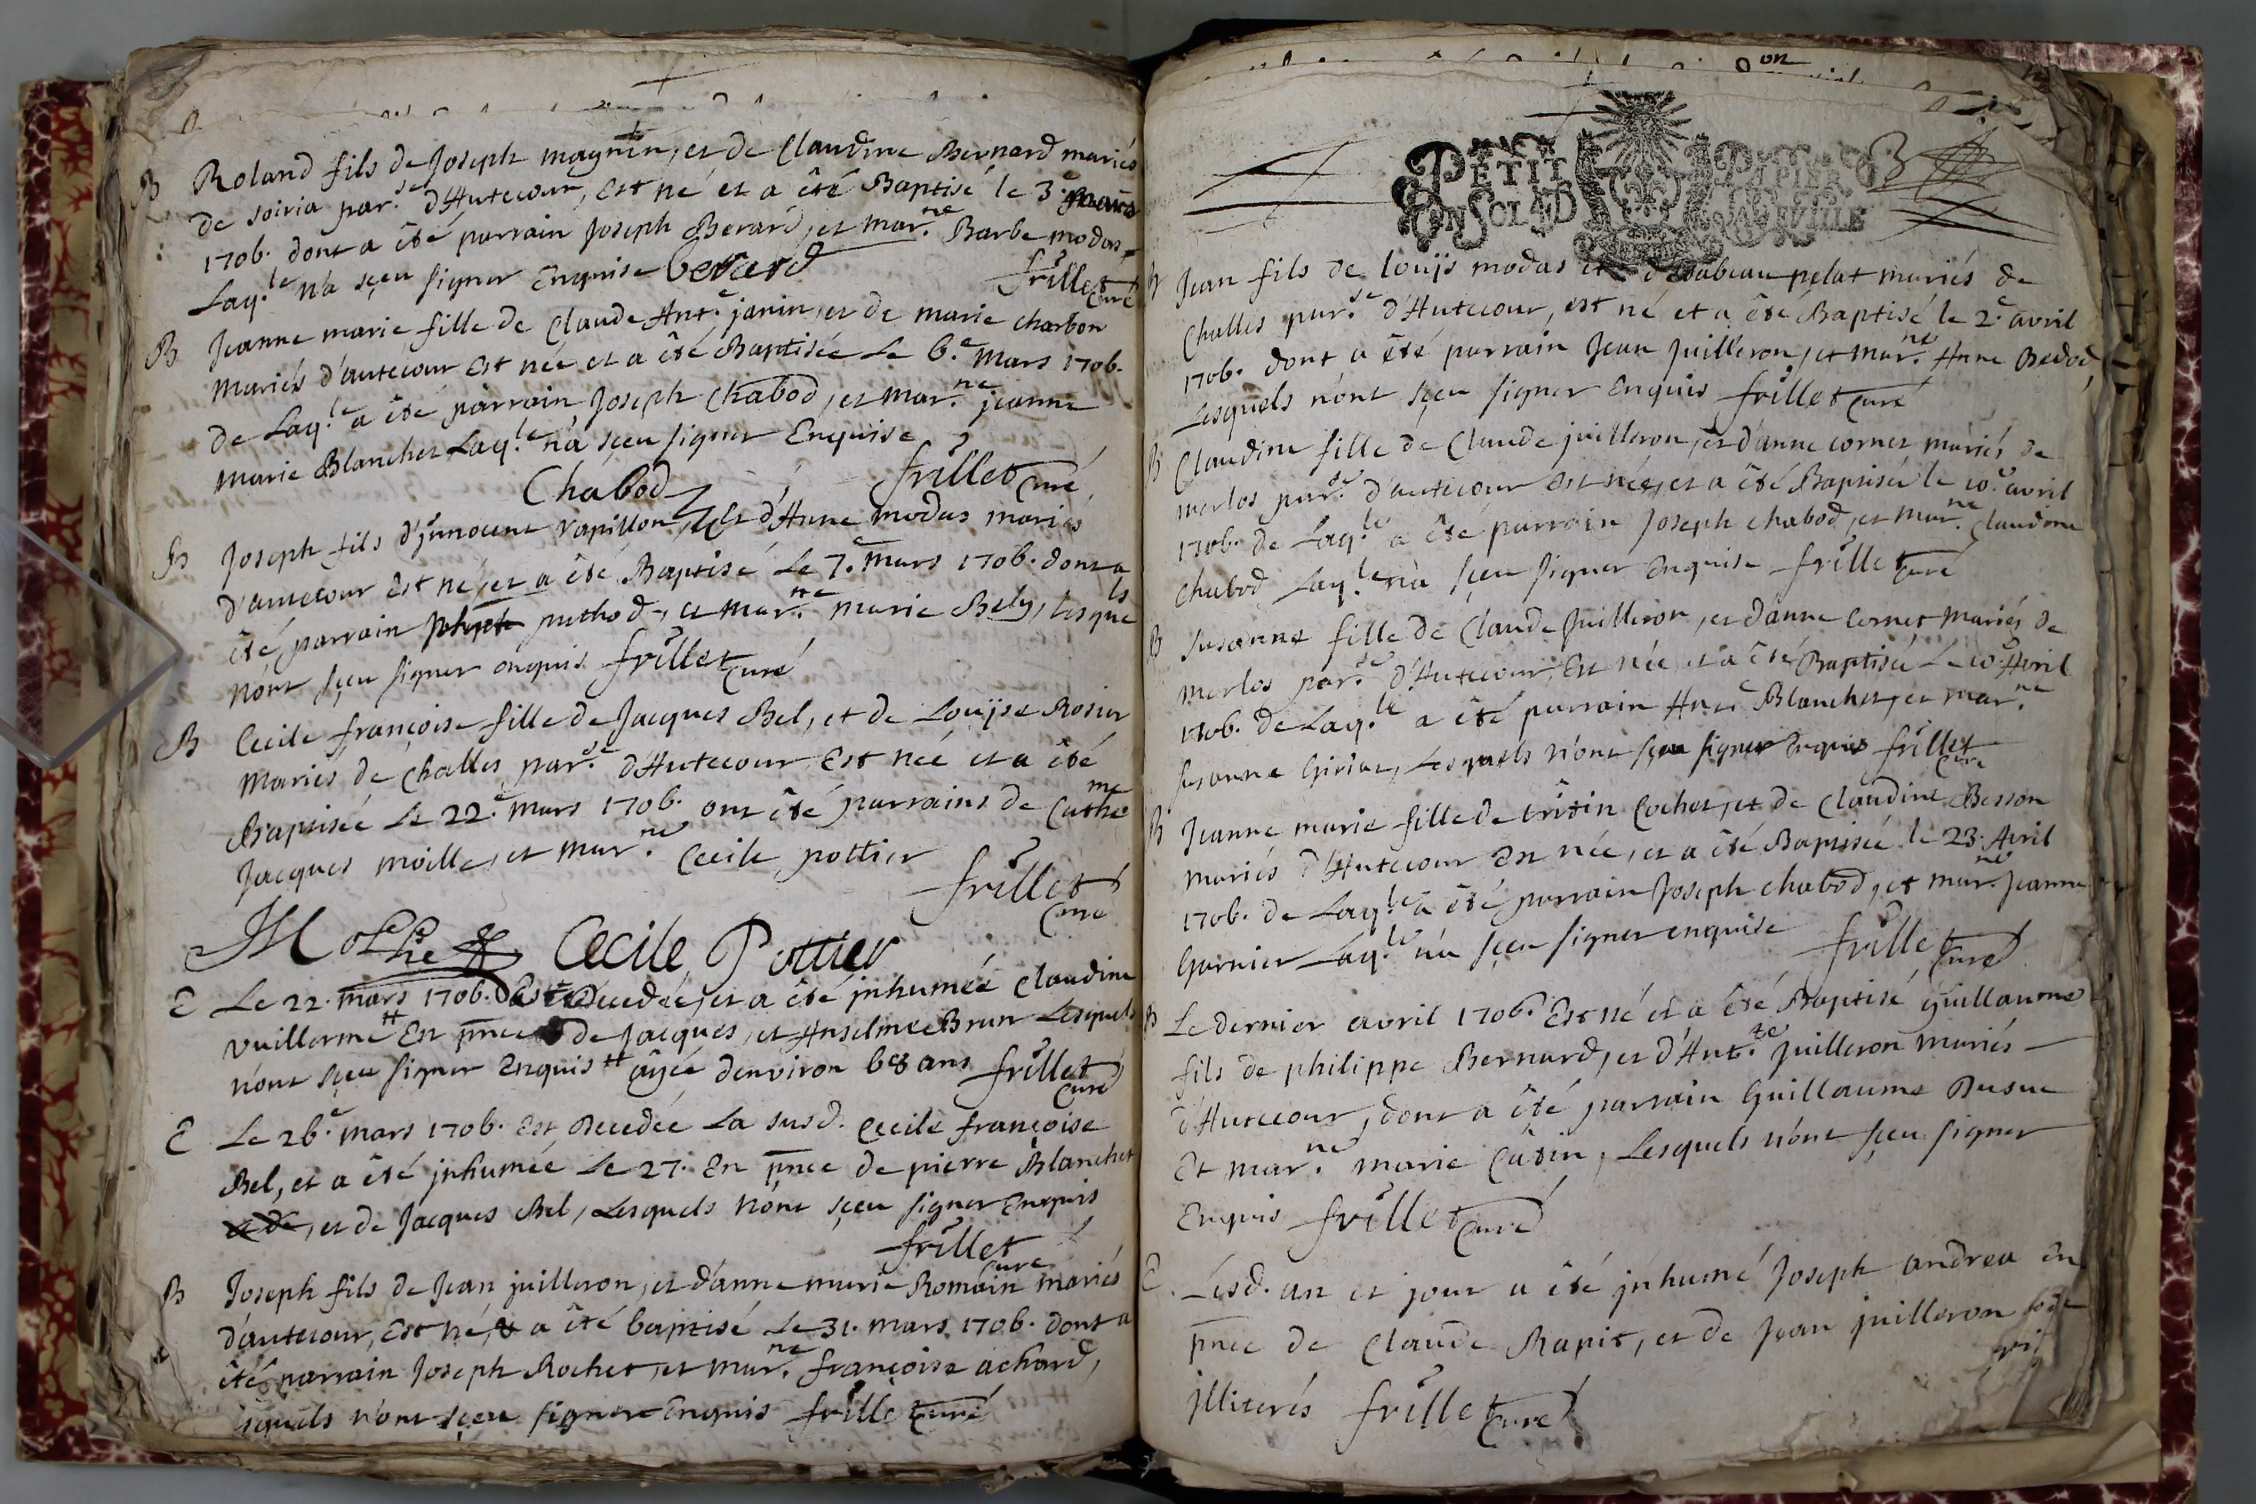 B Roland fils de Joseph magnin, et de Claudine Bernard mariés
de soiria par.se d'Hutecour, Est né et a été Baptisé le 3.e mars
1706. dont a été parrain Joseph Berard, et mar.ne Barbe modas
Laq.le n'a sçeu signer Enquise berard frillet Curé
B Jeanne marie fille de Claude Ant.e janin, et de marie charbon
Mariés d'autecour Est née et a été Baptisée Le 6.e Mars 1706.
de Laq.le a été parrain Joseph Chabod, et mar.ne jeanne
marie Blanchet Laq.le n'a sçeu signer Enquise
Chabod frillet Curé
B Joseph fils d'jnnocent vapillon, Et d'Anne modas mariés
d'autecour Est né, et a été Baptisé Le 7.e mars 1706. dont a
été parrain Joseph puthod, et mar.ne marie Bely, lesquels
n'ont sçeu signer enquis frillet Curé
B Cecile françoise fille de Jacques Bel, et de Louijse Rosier
Mariés de Challes par.se d'Hutecour Est née et a été
Baptisée Le 22.e mars 1706. ont été parrains de Cathe
me
Jacques moille, et mar.ne Cecile pottier
frillet Curé
Cecile Pottier
E Le 22. mars 1706. Est Decedée, et a été jnhumée Claudine
vuillerme # En pnce de Jacques, et Anselme Brun Lesquels
n'ont sçeu signer Enquis # âgée d'environ 68 ans frillet Curé
E Le 26.e mars 1706. Est Decedée La susd. Cecile françoise
Bel, et a été jnhumée Le 27. En pnce de pierre Blanchet
, et de Jacques Bel, Lesquels n'ont sçeu signer Enquis
frillet Curé
B Joseph fils de Jean juilleron, et d'anne marie Romain mariés
d'autecour, Est né, & a été baptisé Le 31. mars 1706. dont a
été parrain Joseph Rochet, et mar.ne françoise achard,
lsquels n'ont sçeu signer Enquis frillet Curé
PETIT PAPIER
UN SOL LA FEUILLE
B Jean fils de louijs modas et d'Isabeau pelat mariés de
Challes par.se d'Hutecour, est né et a été Baptisé le 2.e avril
1706. dont a été parrain Jean Juilleron, et mar.ne Anne Bedod,
Lesquels n'ont sçeu signer Enquis frillet Curé
B Claudine fille de Claude juilleron, et d'anne cornet mariés de
merlos par.se d'autecour Est née, et a été Baptisée le 10.e avril
1706. de Laq.le a été parrain Joseph chabod, et mar.ne Claudine
Chabod Laq.le n'a sçeu signer Enquise frillet Curé
B Susanne fille de Claude Juilleron, et d'anne Cornet Mariés de
Merlos par.se d'Hutecour, Est née et a été Baptisée Le 10.e Avril
1706. de Laq.le a été parrain Ant.e Blanchet, et mar.ne
susanne Girier, Lesquels n'ont sçeu signer Enquis frillet Curé
B Jeanne marie fille de Cochet, et de Claudine Besson
Mariés d'Hutecour Est née, et a été Baptisée le 23. Avril
1706. de Laq.le a été parrain Joseph chabod, et mar.ne Jeanne
Garnier Laq.le n'a sçeu signer enquise frillet Curé
B Le dernier avril 1706. Est né et a été Baptisé guillaume
fils de philippe Bernard, et d'Ant.te juilleron mariés
d'Hutecour, dont a été parrain Guillaume Busue
Et mar.ne marie Cûtin, Lesquels n'ont sçeu signer
Enquis frillet Curé
E Lesd. an et jour a été jnhumé Joseph andrea En
pnce de Claude Rapit, et de Jean juilleron
jlliterés frillet Curé